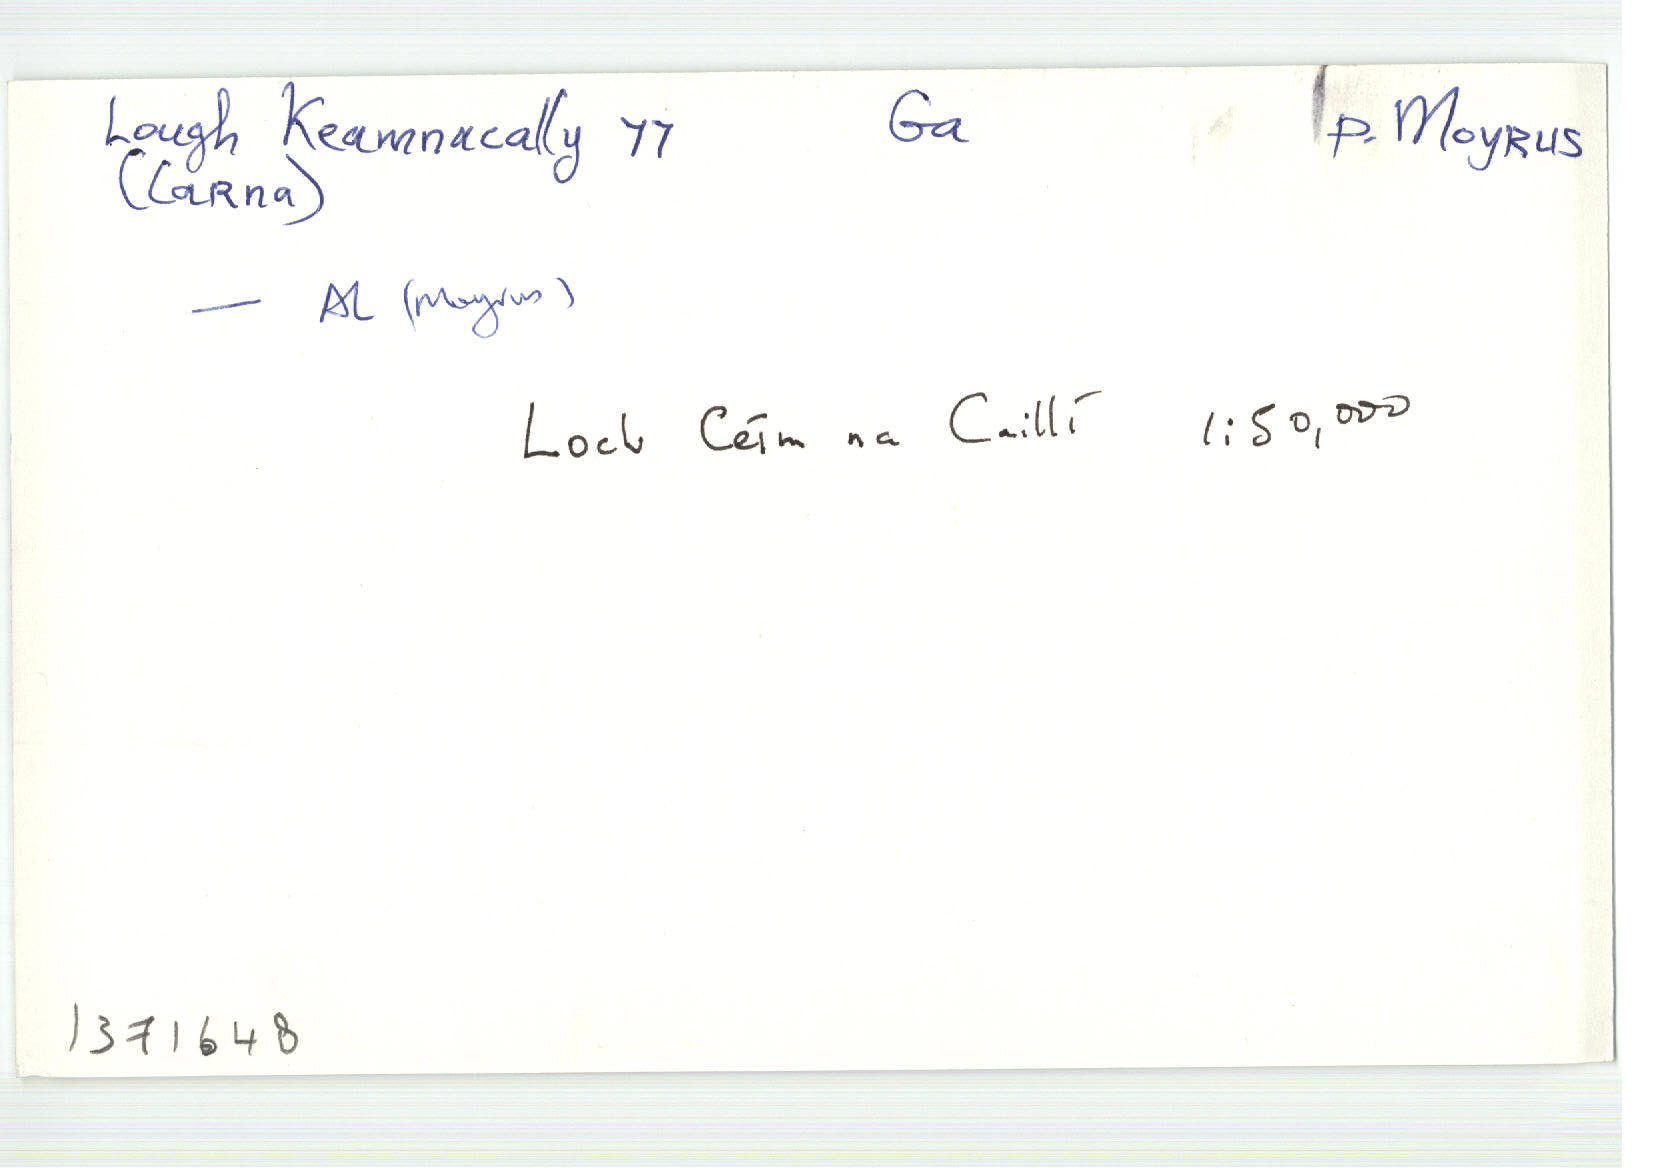 Lough Keamnacally 77 Ga p. Moyrus
(Carna)
— AL (Moyrus)
Loch Céim na Caillí 1:50,000
1371648